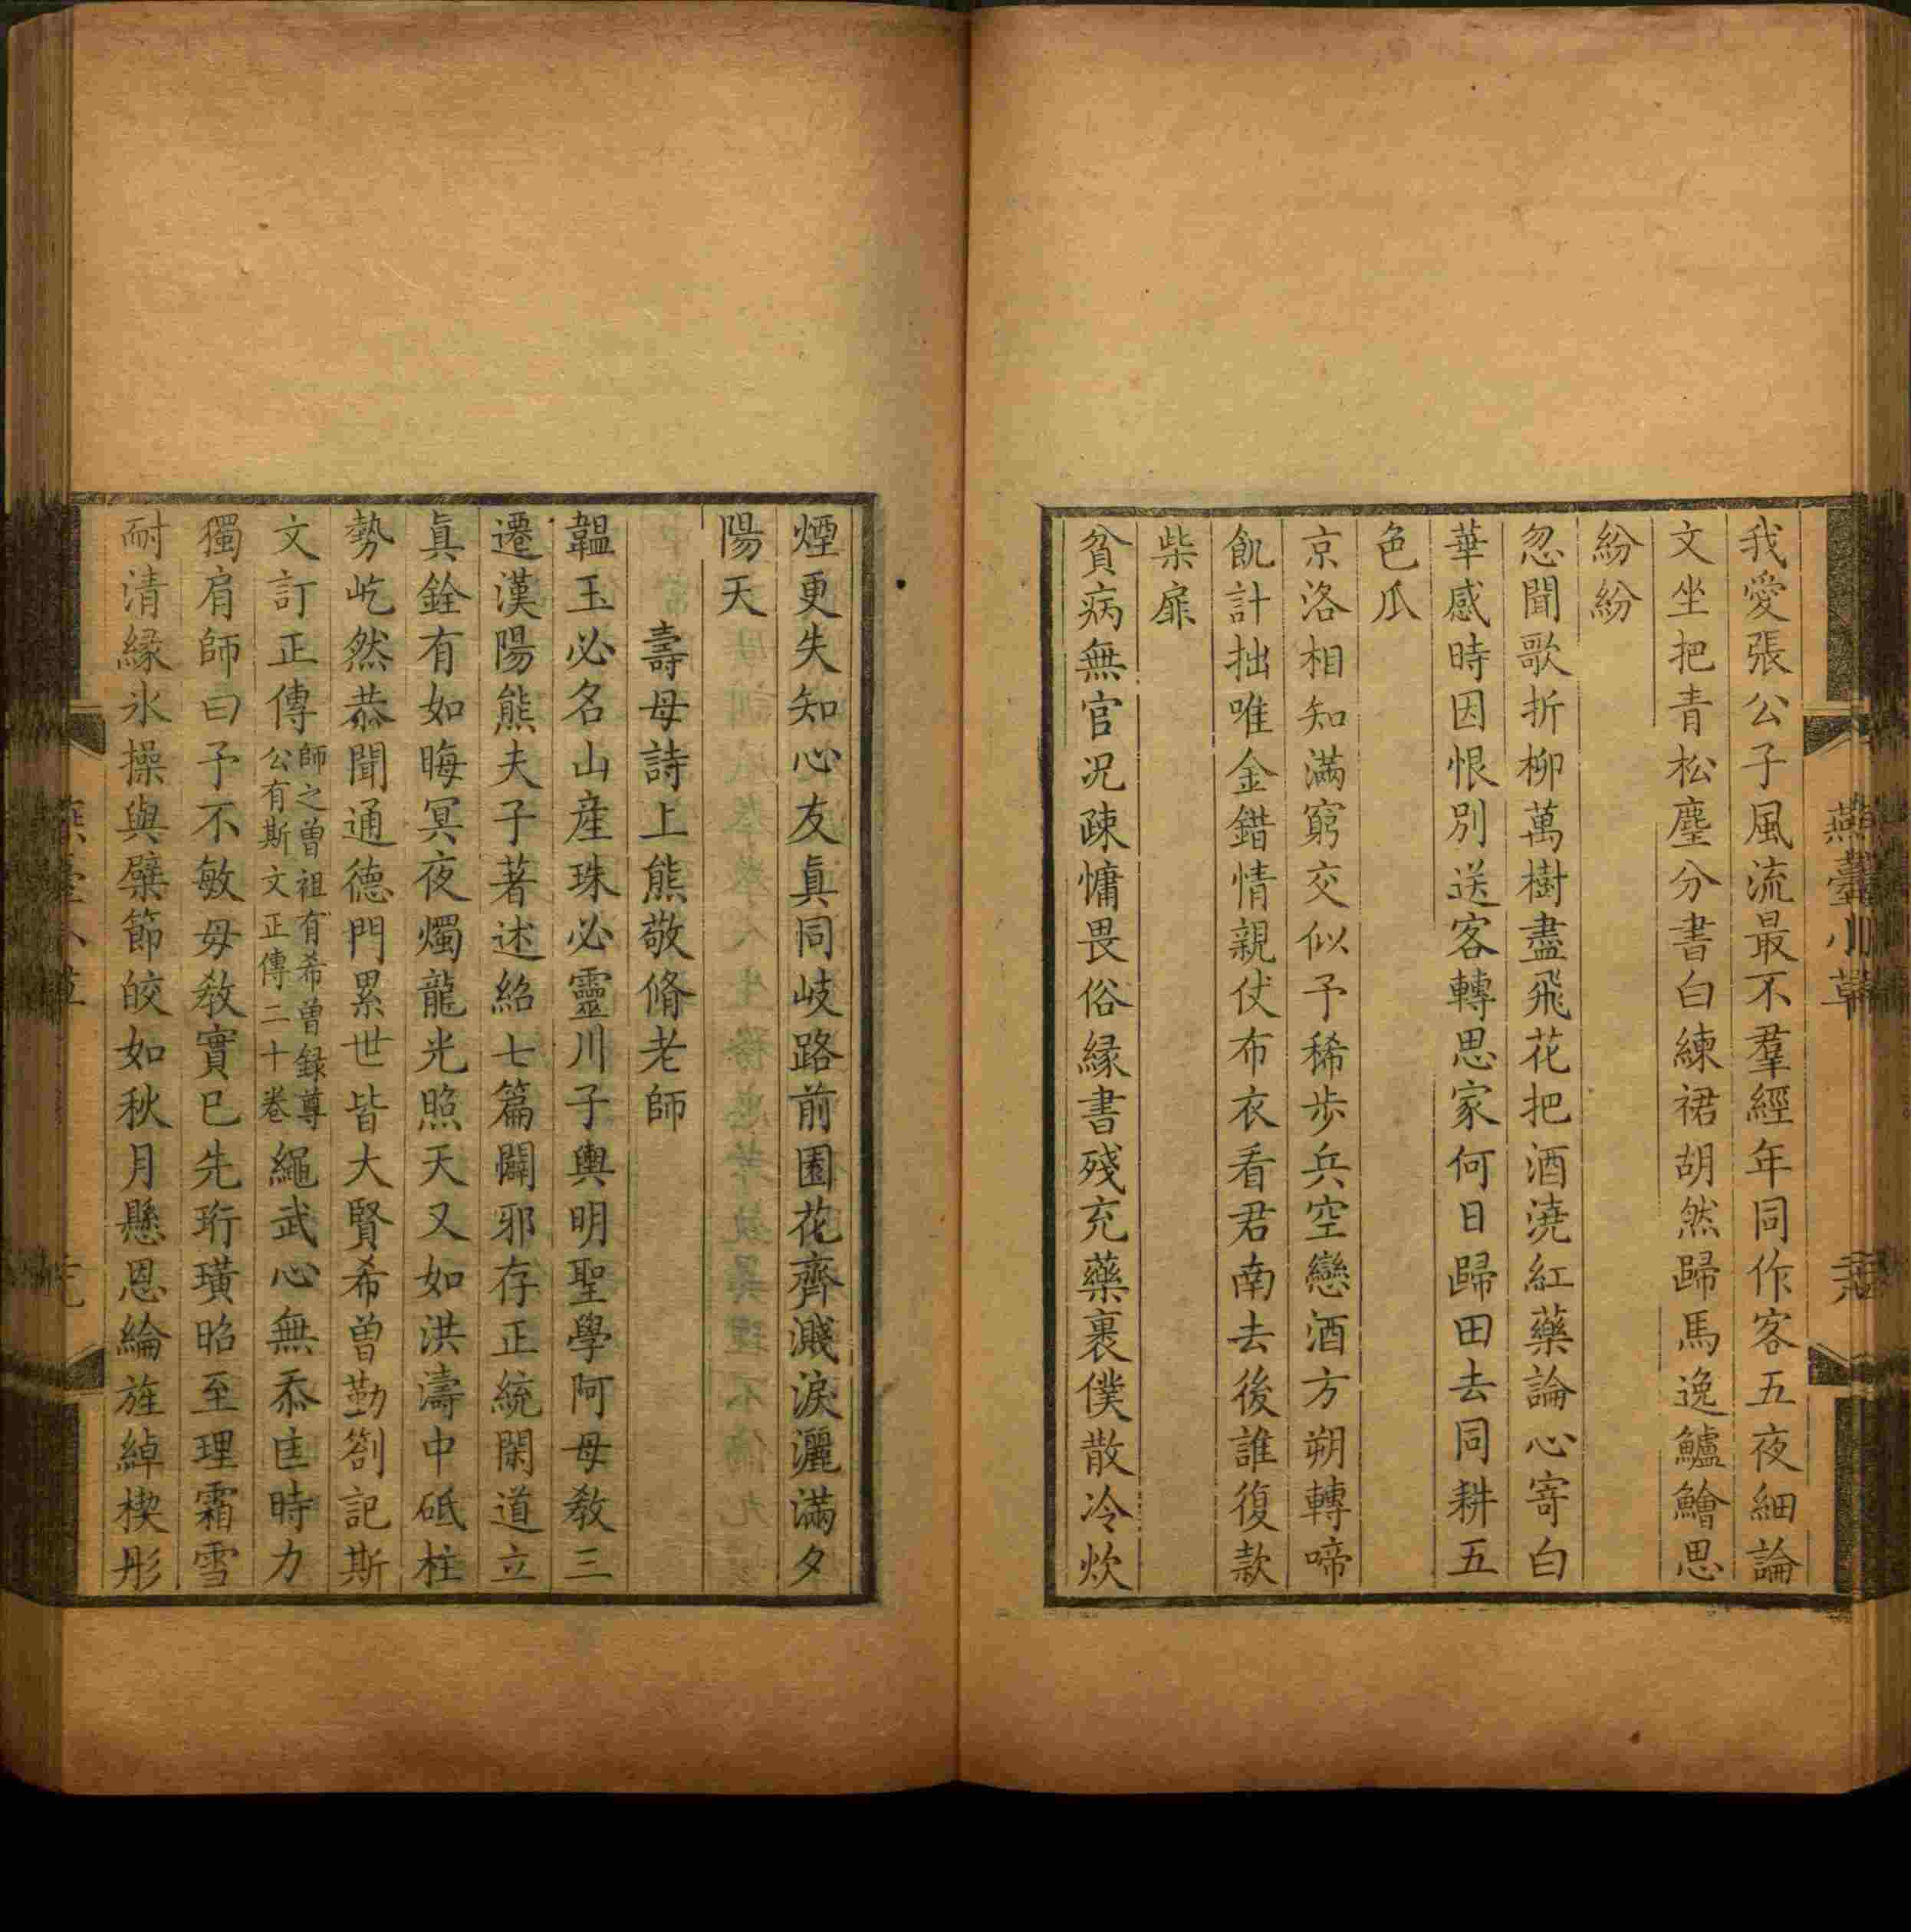 燕臺小草
我愛張公子風流最不羣經年同作客五夜細論
文坐把青松塵分書白練裙胡然歸馬逸鱸鱠思
紛紛
忽聞歌折柳萬樹盡飛花把酒澆紅藥論心寄白
華感時因恨別送客轉思家何日歸田去同耕五
色瓜
京洛相知滿窮交似予稀步兵空戀酒方朔轉啼
飢計拙唯金錯情親仗布衣看君南去後誰復款
柴扉
貧病無官况疎慵畏俗緣書殘充藥裹僕散冷炊
煙更失知心友眞同岐路前園花齊濺淚灑滿夕
陽天
壽母詩上熊敬脩老師
韞玉必名山產珠必靈川子輿明聖學阿母教三
遷漢陽熊夫子著述紹七篇闢邪存正統閑道立
眞銓有如晦冥夜燭龍光照天又如洪濤中砥柱
勢屹然恭聞通德門累世皆大賢希曾勤劄記斯
文訂正傳師之曾祖有希曾録尊公有斯文正傳二十卷繩武心無忝匡時力
獨肩師曰予不敏毋敎實巳先珩璜昭至理霜雪
耐清緣氷操與檗節皎如秋月懸恩綸旌綽楔彤